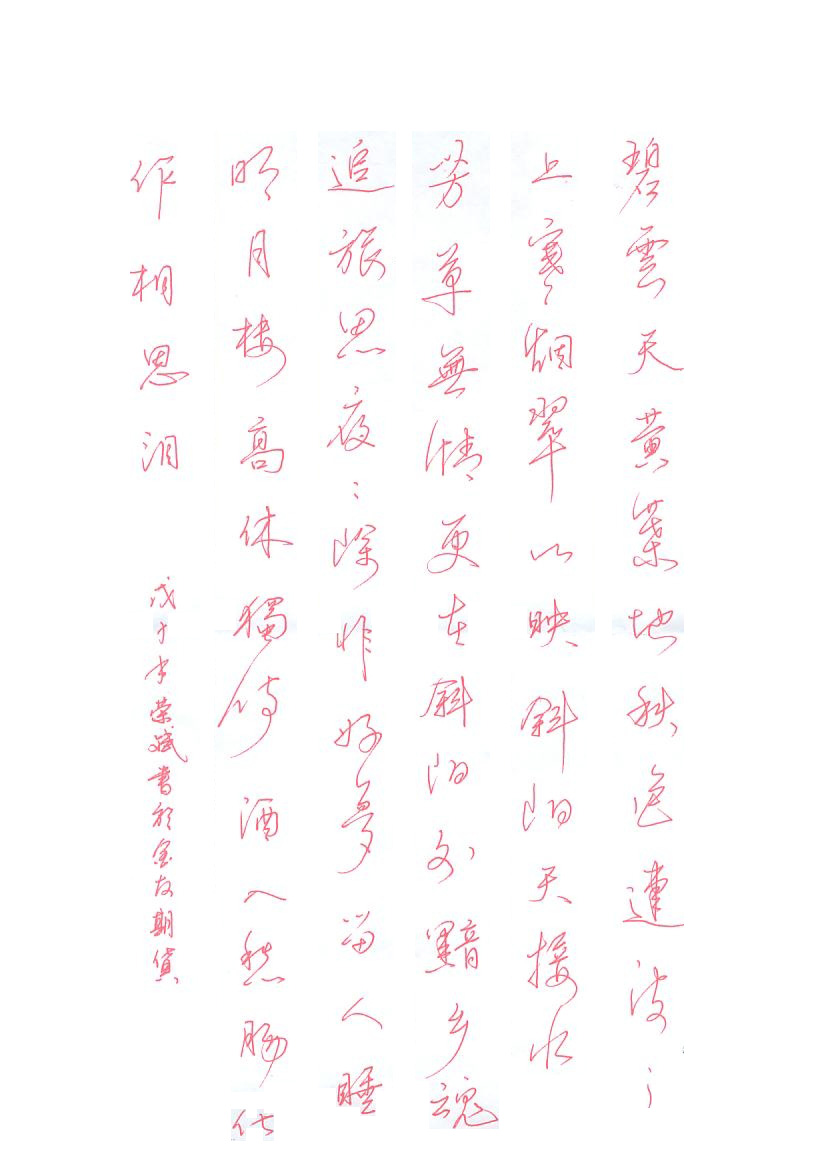 碧雲天黄葉地秋色連波〻
上寒烟翠山映斜阳天接水
芳草無情更在斜阳外黯乡魂
追旅思夜〻除非好夢留人睡
明月楼高休獨倚酒入愁肠化
作相思泪
戊子李荣斌書於金友期貨